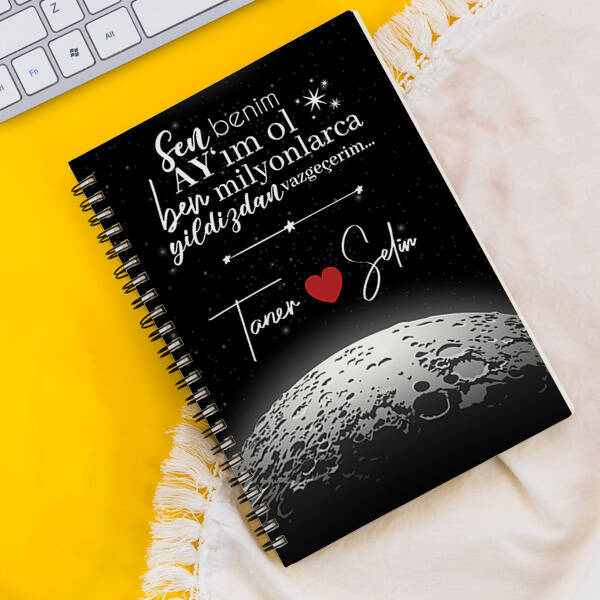 Sen benim
AY'ım ol
ben milyonlarca
yildizdan vazgeçerim...
Taner Selin
Z
X
Fn
Alt